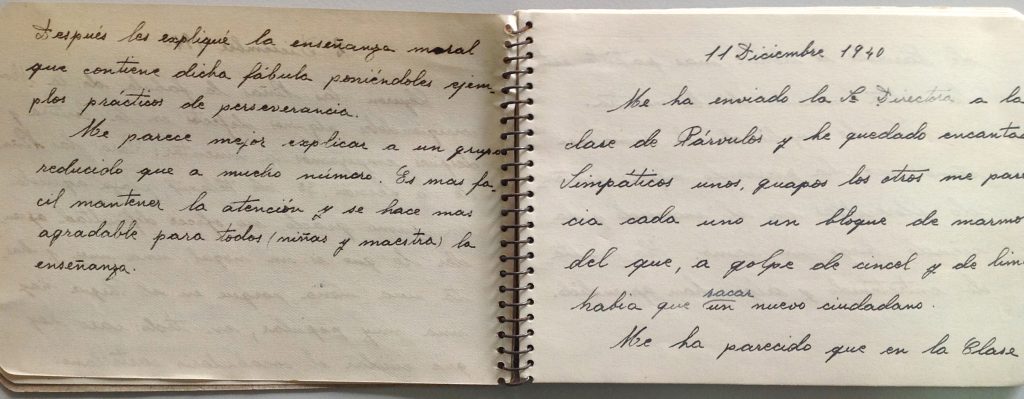 Después les expliqué la enseñanza moral
que contiene dicha fábula poniéndoles ejem-
plos prácticos de perseverancia.
Me parece mejor explicar a un grupo
reducido que a mucho número. Es mas fa-
cil mantener la atención y se hace mas
agradable para todos (niñas y maestra) la
enseñanza.
11 Diciembre 1940
Me ha enviado la Sª Directora a la
clase de Párvulos y he quedado encanta
Simpáticos unos, guapos los otros me pare
cia cada uno un bloque de marmo
del que, a golpe de cincel y de lim
habia que sacar un nuevo ciudadano.
Me ha parecido que en la Clase